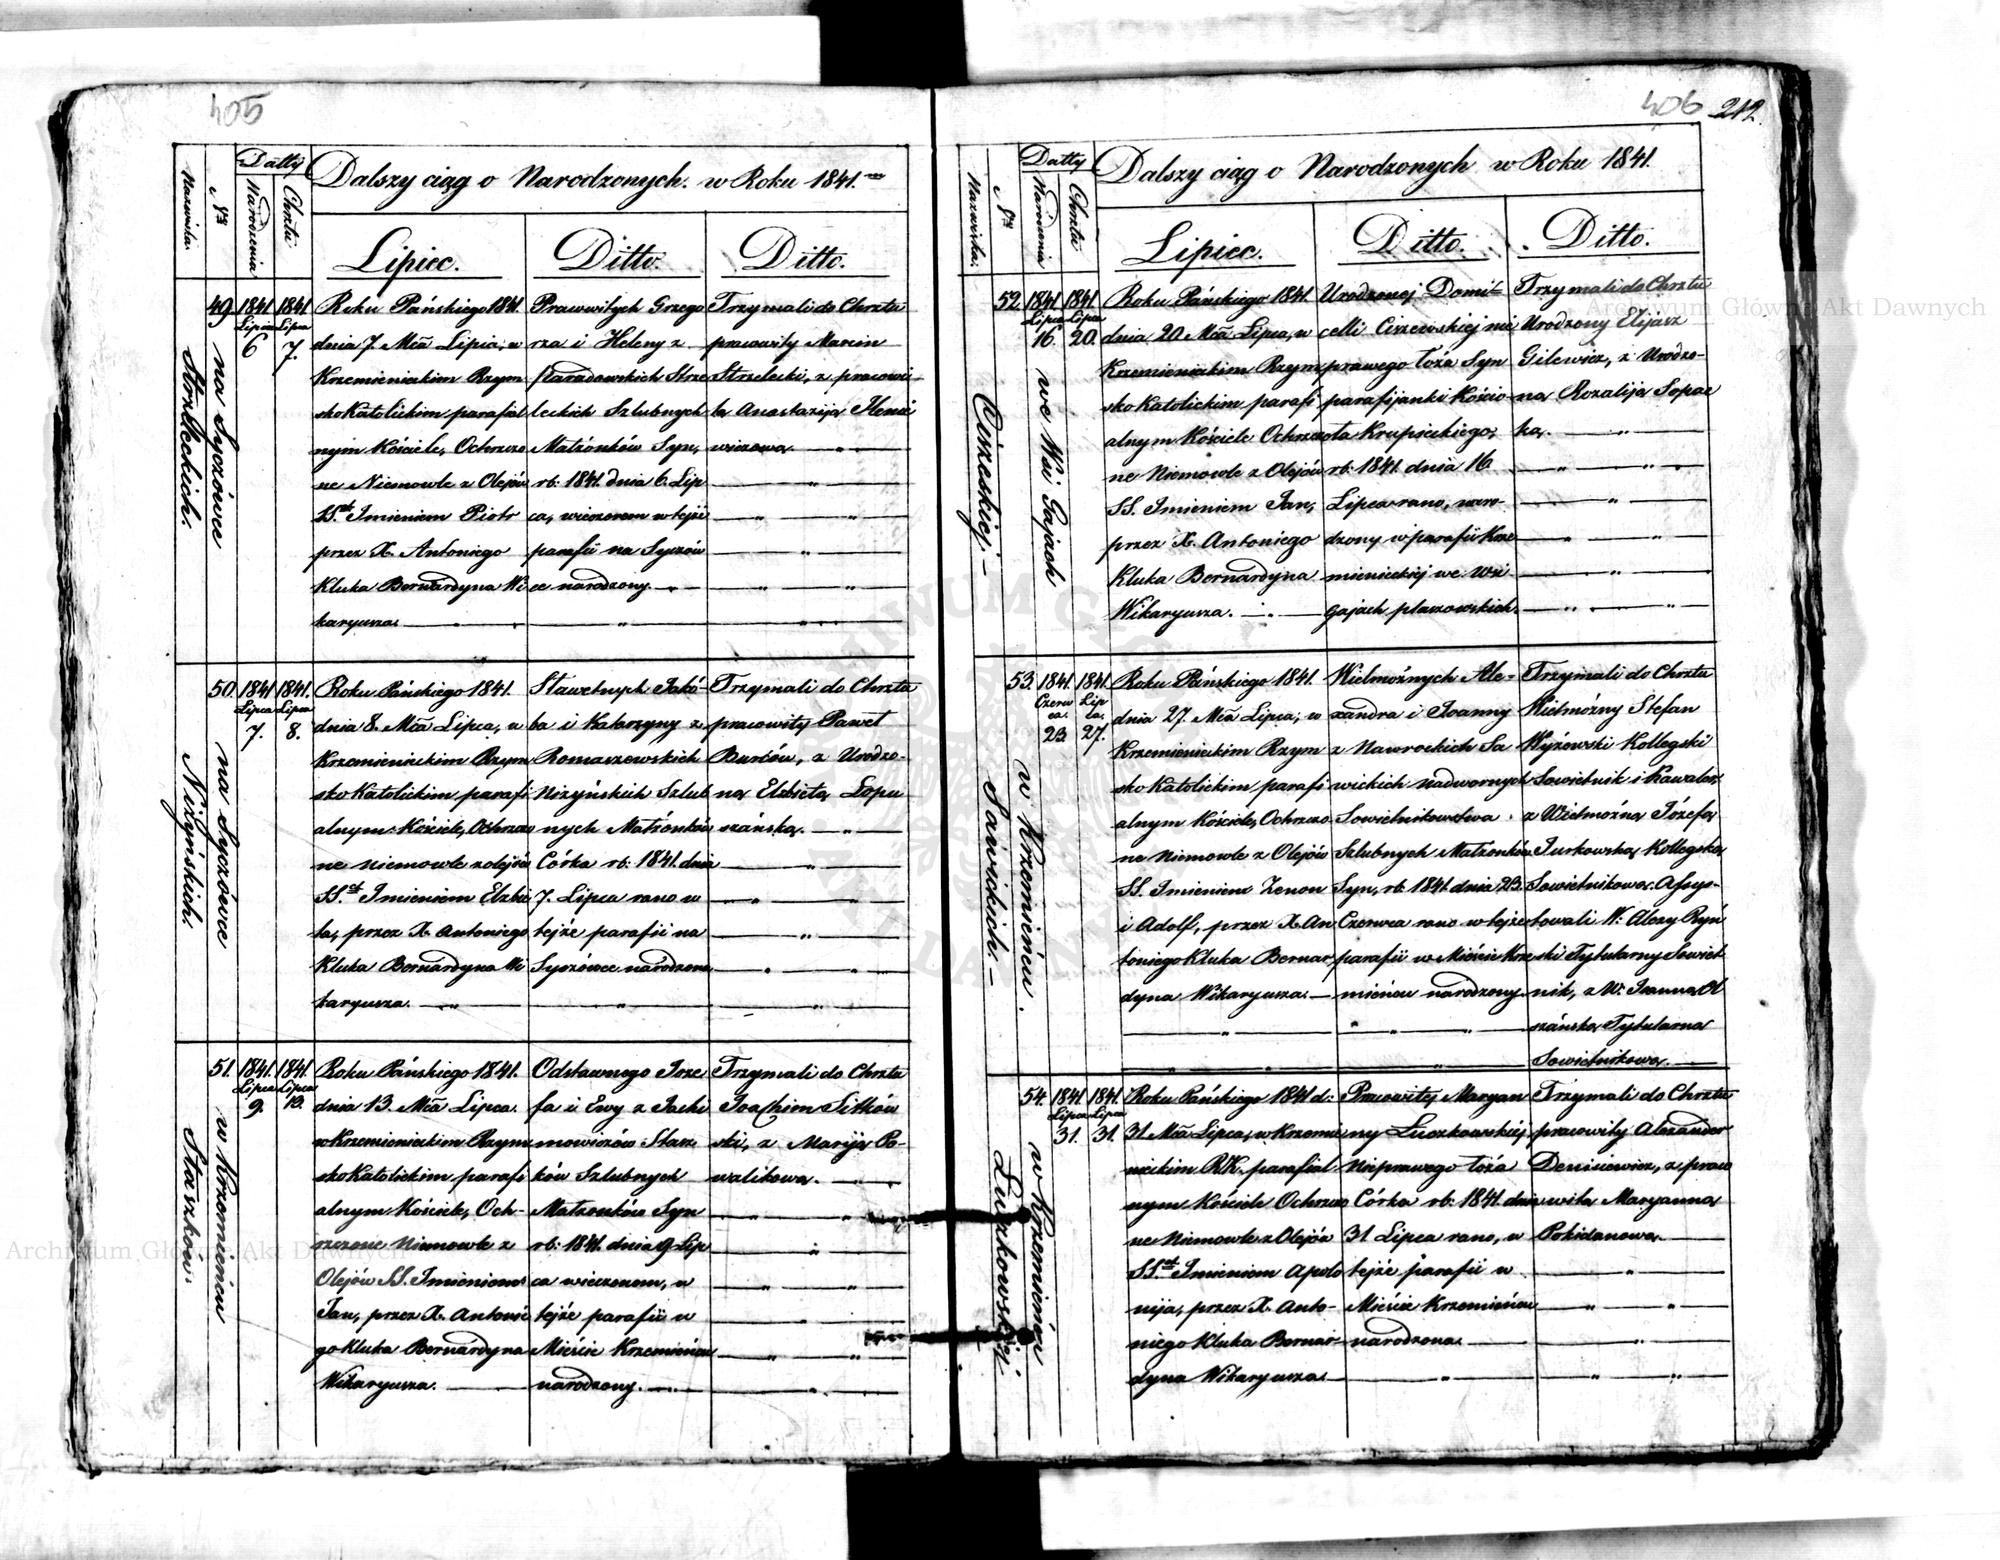 405
Datty
Dalszy ciąg o Narodzonych w Roku 1841.
Nazwiska.
Nra
Narodzenia
Chrztu
Lipiec.
Ditto.
Ditto.
49.
1841 Lipca 6
1841 Lipca 7.
na Syczówce
Strzeleckich.
Roku Pańskiego 1841.
dnia 7. Mca Lipca, w
Krzemienieckim Rzym
sko Katolickim parafial
nym Kościele, Ochrzczo
ne Niemowle z Olejów
SSst. Imieniem Piotr
przez X. Antoniego
Kluka Bernardyna Wi
karyusza.
Pracowitych Grzego
rza i Heleny z
Strze
leckich Szlubnych
Małżonków Syn,
rb. 1841. dnia 6. Lip
ca, wieczorem w tejże
parafii na Syczów
ce narodzony.
Trzymali do Chrztu
pracowity Marcin
Strzelecki, z pracowi-
tą Anastazyją
wiczową.
50.
1841 Lipca 7.
1841. Lipca 8.
na Syczówce
Niżyńskich.
Roku Pańskiego 1841.
dnia 8. Mca Lipca, w
Krzemienieckim Rzym
sko Katolickim parafi
alnym Kościele, Ochrzczo
ne niemowle z olejów
SSst. Imieniem Elżbie
ta, przez X. Antoniego
Kluka Bernardyna Wi
karyusza.
Sławetnych Jakó-
ba i Katarzyny z
Romaszewskich
Niżyńskich Szlub
nych Małżonków
Córka rb. 1841. dnia
7. Lipca rano w
tejże parafii na
Syczówce narodzona
Trzymali do Chrztu
pracowity Paweł
Burców, z Urodzo-
ną Elżbietą Łopu
szańską.
51.
1841. Lipca 9.
1841. Lipca 13.
w Krzemieńcu
Staszków.
Roku Pańskiego 1841.
dnia 13. Mca Lipca.
w Krzemienieckim Rzym
sko Katolickim parafi
alnym Kościele, Och-
rzczone Niemowle z
Olejów SS. Imieniem
Jan, przez X. Antonie
go Kluka Bernardyna
Wikaryusza.
Odstawnego Józe
fa i Ewy z Jachi
mowiczów Stasz
ków Szlubnych
Małżonków Syn
rb. 1841. dnia 9. Lip
ca wieczorem, w
tejże parafii w
Mieście Krzemieńcu
narodzony.
Trzymali do Chrztu
Joachim Sitków
ski, z Maryją Po-
walikową.
406 212.
Datty
Dalszy ciąg o Narodzonych w Roku 1841.
Nazwiska.
Nra
Narodzenia
Chrztu
Lipiec.
Ditto.
Ditto.
52.
1841 Lipca 16.
1841 Lipca 20.
we Wsi Gajach
Ciszeskiej.
Roku Pańskiego 1841.
dnia 20. Mca Lipca, w
Krzemienieckim Rzym
sko Katolickim parafi
alnym Kościele Ochrzczo
ne Niemowle z Olejów
SS. Imieniem Jan,
przez X. Antoniego
Kluka Bernardyna
Wikaryusza.
Urodzonej Domi-
celli Ciszewskiej nie
prawego łoża Syn
parafijanki Kościo
ła Krupieckiego,
rb. 1841. dnia 16.
Lipca rano, naro-
dzony w parafii Krze
mienieckiej we Wsi
gajach płaszowskich.
Trzymali do Chrztu
Urodzony Elijasz
Gilewicz, z Urodzo-
ną Rozaliją Sopać
ką.
53.
1841. Czerw ca. 23.
1841. Lip ca. 27.
w Krzemieńcu.
Sawickich.
Roku Pańskiego 1841.
dnia 27. Mca Lipca, w
Krzemienieckim Rzym
sko Katolickim parafi
alnym Kościele, Ochrzczo
ne Niemowle z Olejów
SS. Imieniem Zenon
i Adolf, przez X. An
toniego Kluka Bernar
dyna Wikaryusza.
Wielmożnych Ale-
xandra i Joanny
z Nawrockich Sa
wickich nadwornych
Sowietnikowstwa
Szlubnych Małżonków
Syn, rb. 1841. dnia 23.
Czerwca rano w tejże
parafii w Mieście Krze
mieńcu narodzony.
Trzymali do Chrztu
Wielmożny Stefan
Wyżewski Kollegski
Sowietnik i Kawaler,
z Wielmożną Józefą
Jurkowską Kollegską
Sowietnikową. Assys-
towali W: Alexy Ryń
ski Tytularny Sowiet
nik, z W: Joanną Ol
szańską Tytularną
Sowietnikową.
54.
1841. Lipca 31.
1841. Lipca 31.
w Krzemieńcu
Łuczkowskiej
Roku Pańskiego 1841. d.
31. Mca Lipca, w Krzemie
nieckim R.K. parafial
nym Kościele Ochrzczo
ne Niemowle z Olejów
SSst. Imieniem Apolo
nija, przez X. Anto-
niego Kluka Bernar
dyna Wikaryusza.
Pracowitej Maryan
ny Łuczkowskiej
Nieprawego łoża
Córka rb. 1841. dnia
31. Lipca rano, w
tejże parafii w
Mieście Krzemieńcu
narodzona.
Trzymali do Chrztu
pracowity Alexander
Denisiewicz, z praco
witą Maryanną
Pokidanową.
Archiwum Główne Akt Dawnych
Archiwum Główne Akt Dawnych